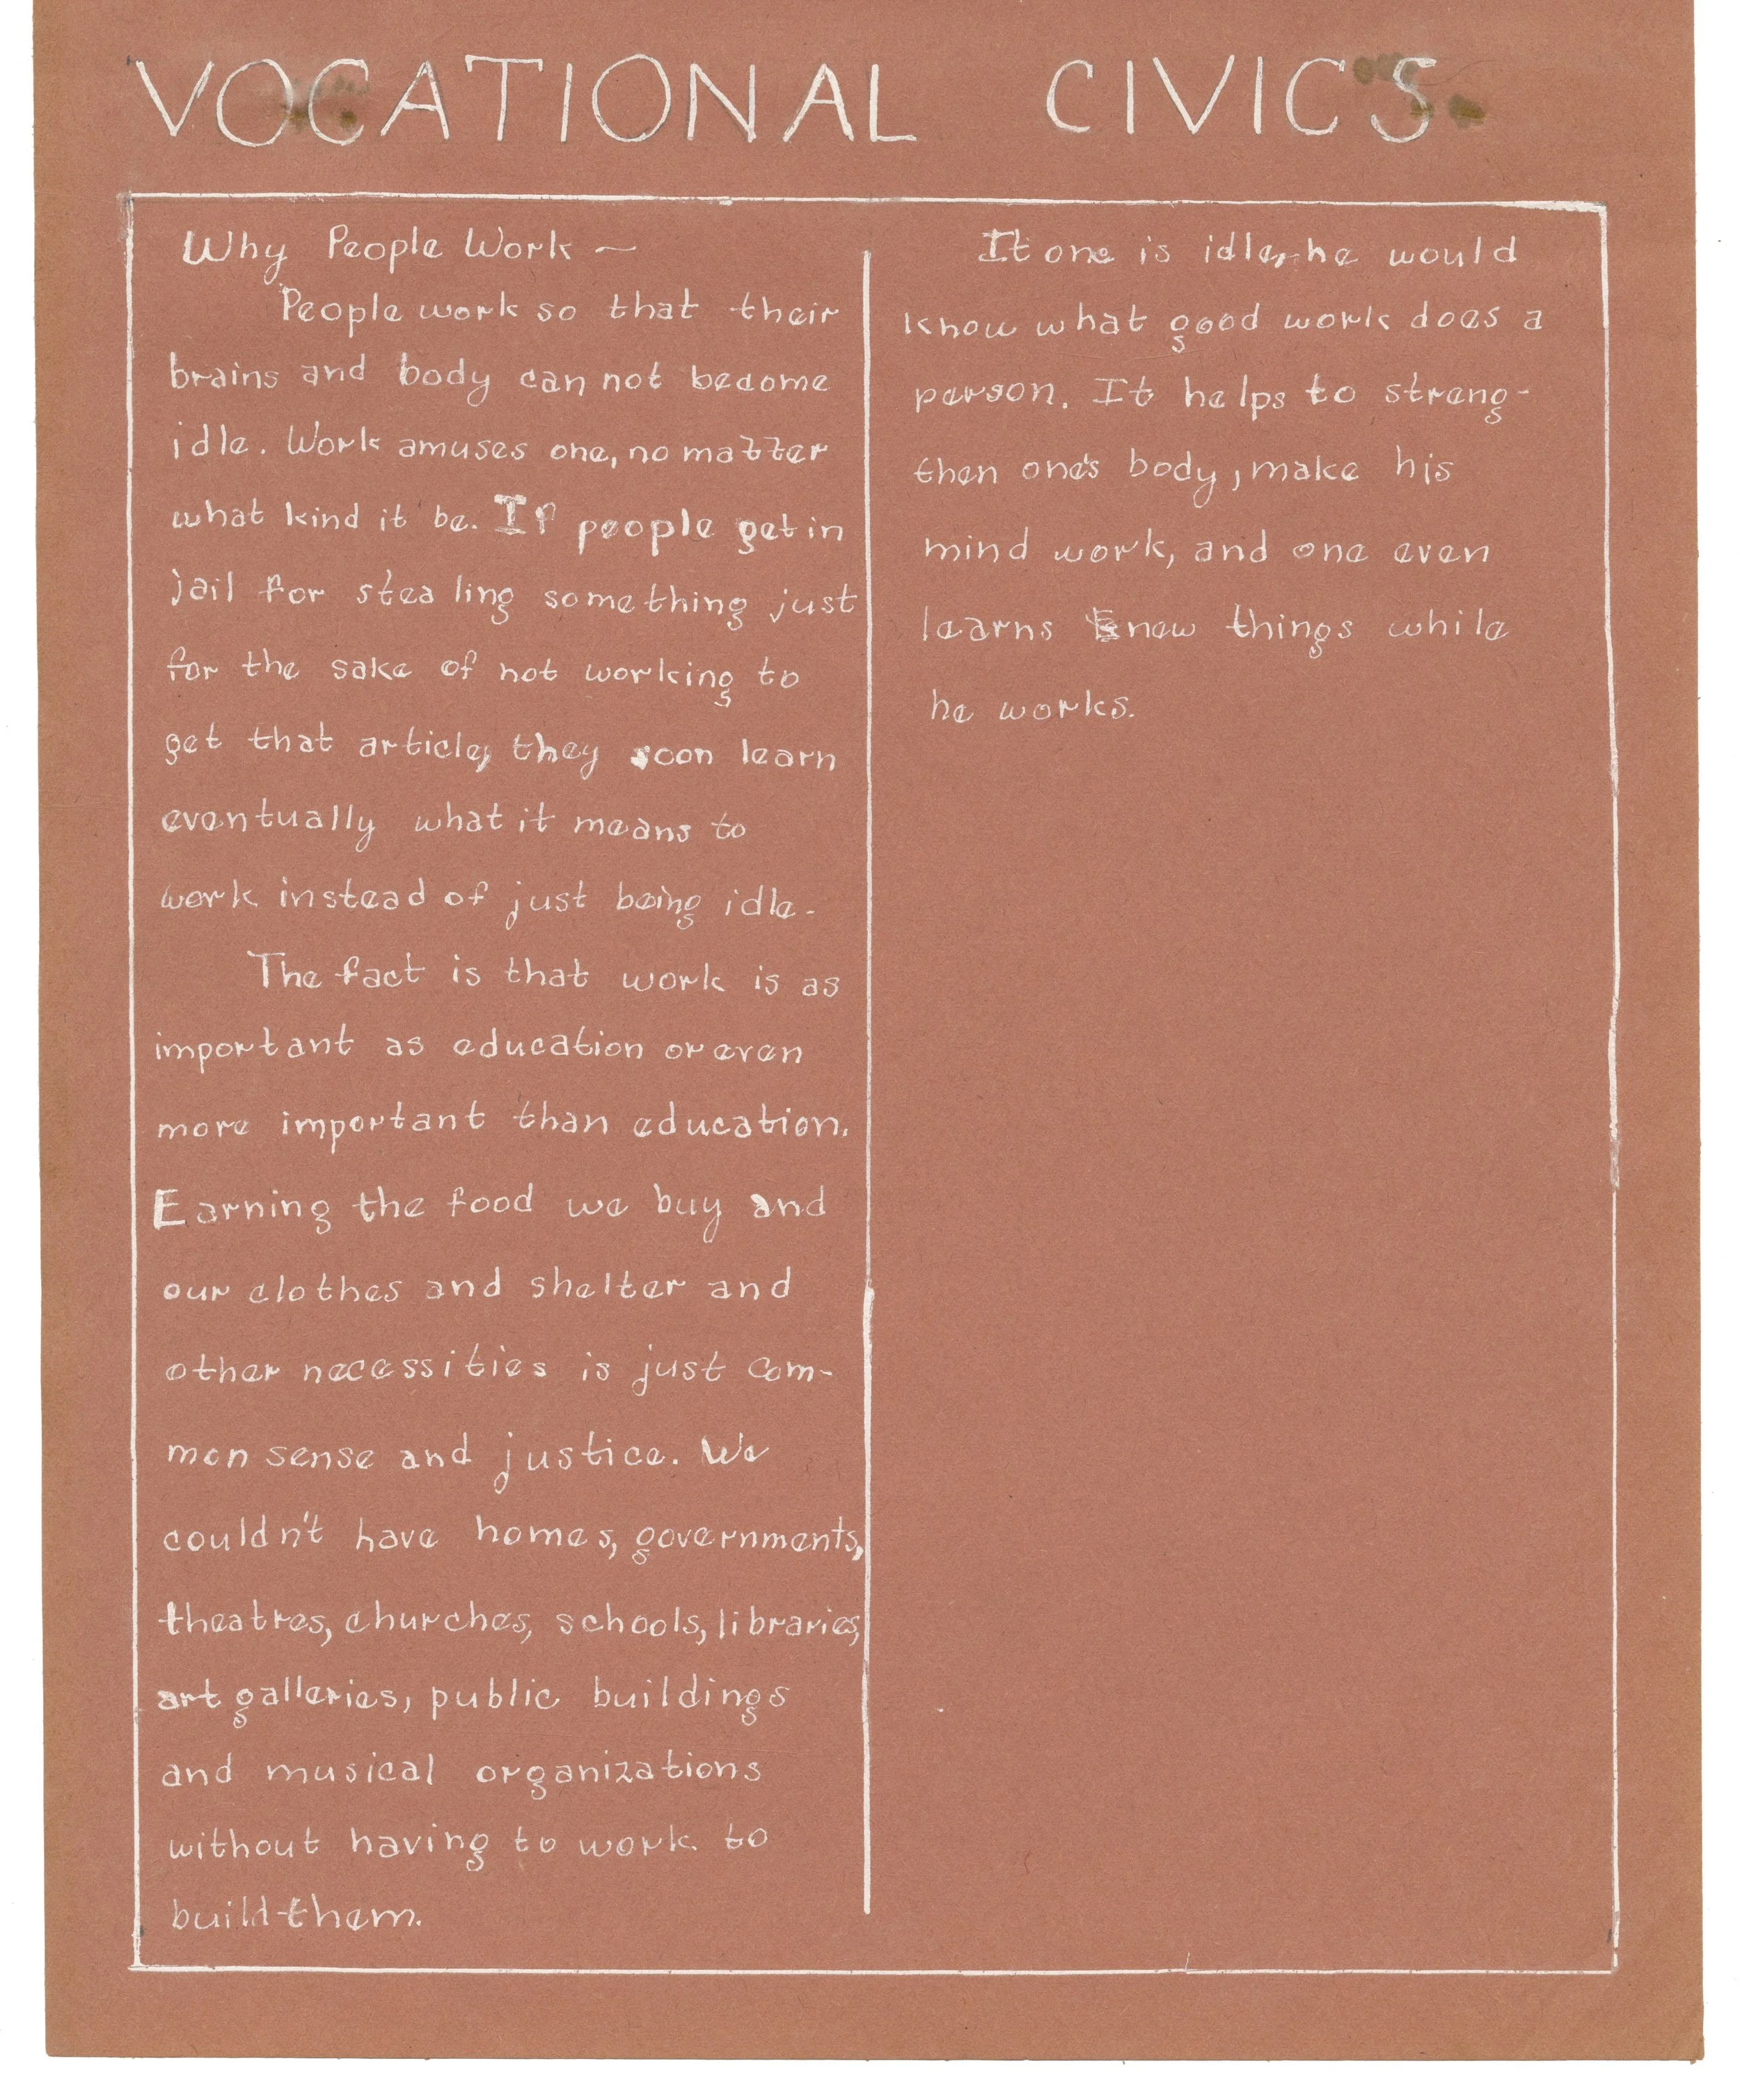 VOCATIONAL CIVICS
Why People Work —
People work so that their
brains and body can not become
idle. Work amuses one, no matter
what kind it be. If people get in
jail for stealing something just
for the sake of not working to
get that article, they soon learn
eventually what it means to
work instead of just being idle.
The fact is that work is as
important as education or even
more important than education.
Earning the food we buy and
our clothes and shelter and
other necessities is just com-
mon sense and justice. We
couldn't have homes, governments,
theatres, churches, schools, libraries,
art galleries, public buildings
and musical organizations
without having to work to
build them.
It one is idle, he would
know what good work does a
person. It helps to streng-
then one's body, make his
mind work, and one even
learns new things while
he works.